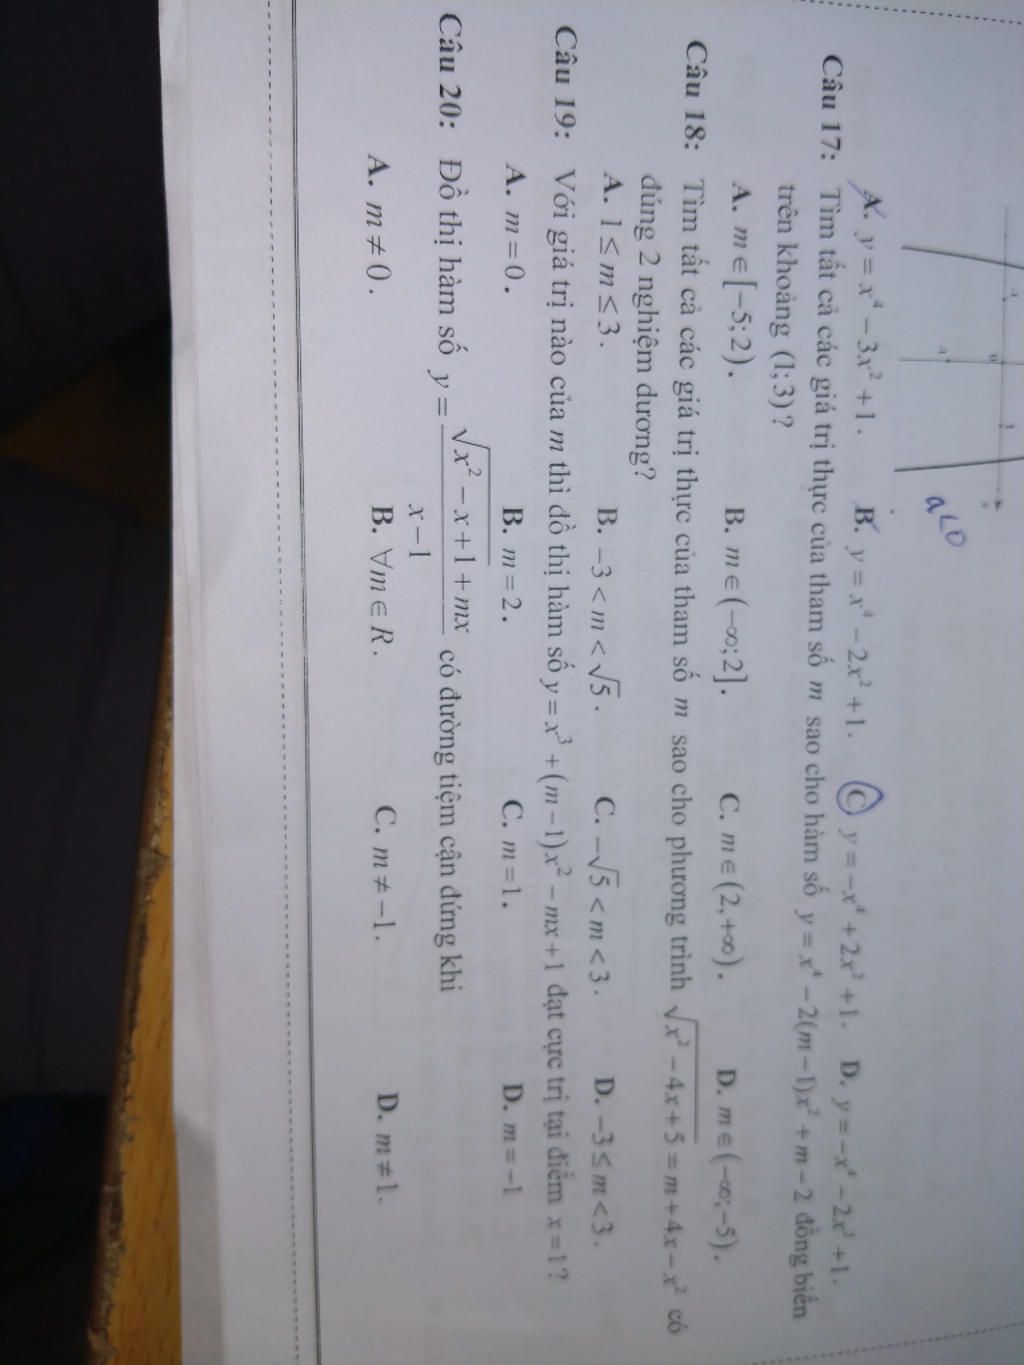 a<0
A. y = x⁴ − 3x² + 1. B. y = x⁴ − 2x² + 1. C y = −x⁴ + 2x² + 1. D. y = −x⁴ − 2x² + 1.
Câu 17: Tìm tất cả các giá trị thực của tham số m sao cho hàm số y = x⁴ − 2(m − 1)x² + m − 2 đồng biến
trên khoảng (1;3)?
A. m ∈ [−5;2). B. m ∈ (−∞;2]. C. m ∈ (2,+∞). D. m ∈ (−∞;−5).
Câu 18: Tìm tất cả các giá trị thực của tham số m sao cho phương trình √(x² − 4x + 5) = m + 4x − x² có
đúng 2 nghiệm dương?
A. 1 ≤ m ≤ 3. B. −3 < m < √5. C. −√5 < m < 3. D. −3 ≤ m < 3.
Câu 19: Với giá trị nào của m thì đồ thị hàm số y = x³ + (m − 1)x² − mx + 1 đạt cực trị tại điểm x = 1?
A. m = 0. B. m = 2. C. m = 1. D. m = −1
Câu 20: Đồ thị hàm số y = (√(x² − x + 1) + mx)/(x − 1) có đường tiệm cận đứng khi
A. m ≠ 0. B. ∀m ∈ R. C. m ≠ −1. D. m ≠ 1.